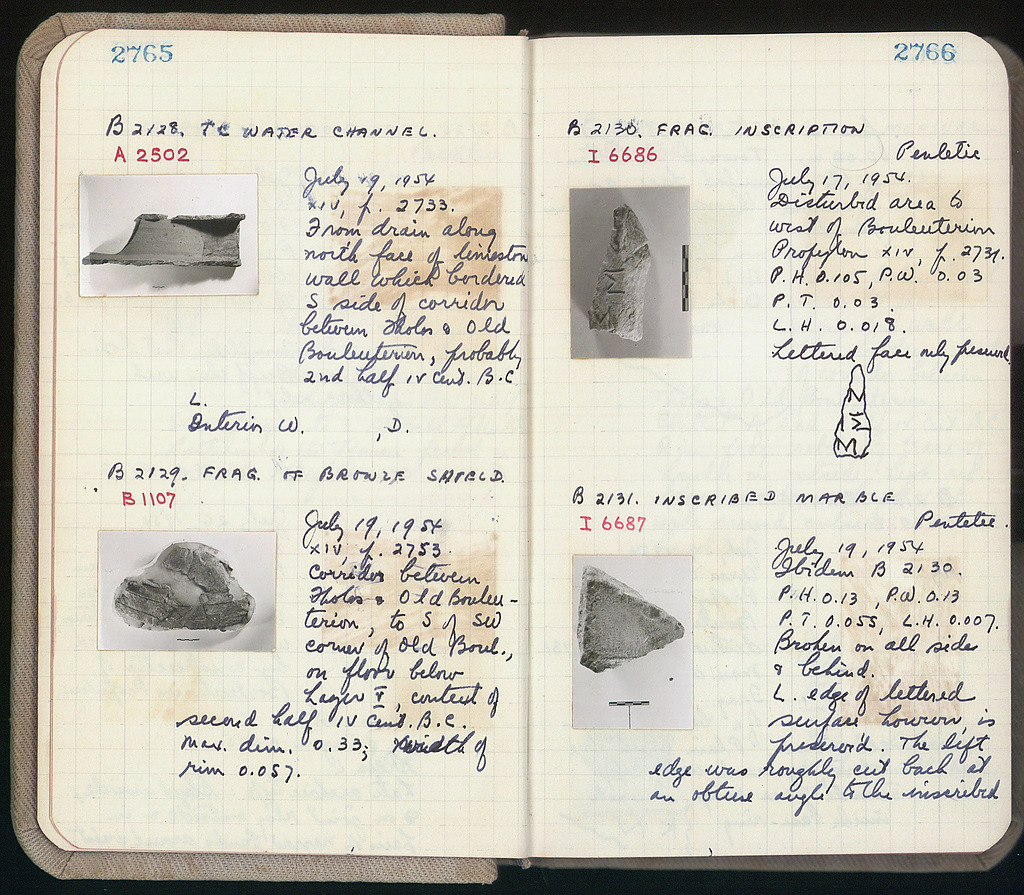 2765
B 2128. TC WATER CHANNEL.
A 2502
July 9, 1954
XIV, p. 2733.
From drain along
north face of limeston
wall which bordered
S side of corridor
between Tholos & Old
Bouleuterion, probably
2nd half IV cent. B.C
L.
Interior W. , D.
B 2129. FRAG. OF BRONZE SHIELD.
B 1107
July 19, 1954
XIV, p. 2753.
corridor between
Tholos & Old Bouleu-
terion, to S of SW
corner of Old Boul.,
on floor below
Layer V, context of
second half IV cent. B.C.
Max. dim. 0.33; width of
rim 0.057.
2766
B 2130. FRAG. INSCRIPTION
I 6686
Pentelic
July 17, 1954.
Disturbed area to
west of Bouleuterion
Propylon XIV, p. 2731.
P.H. 0.105, P.W. 0.03
P.T. 0.03.
L.H. 0.018.
Lettered face only preserved.
B 2131. INSCRIBED MARBLE
I 6687
Pentelic.
July 19, 1954
Ibidem B 2130.
P.H. 0.13, P.W. 0.13
P.T. 0.055, L.H. 0.007.
Broken on all sides
& behind.
L. edge of lettered
surface however, is
preserved. The left
edge was roughly cut back at
an obtuse angle to the inscribed